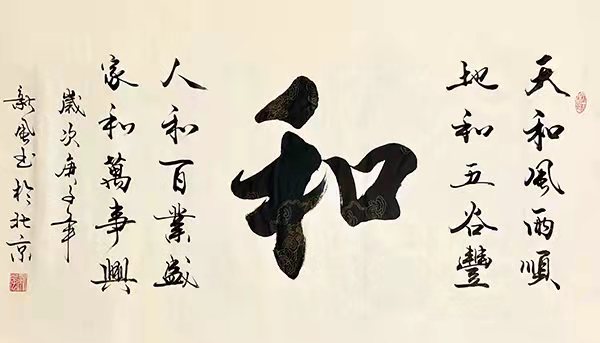 天和風雨順
地和五谷豐
和
人和百業盛
家和萬事興
歲次庚子年
新風书於北京